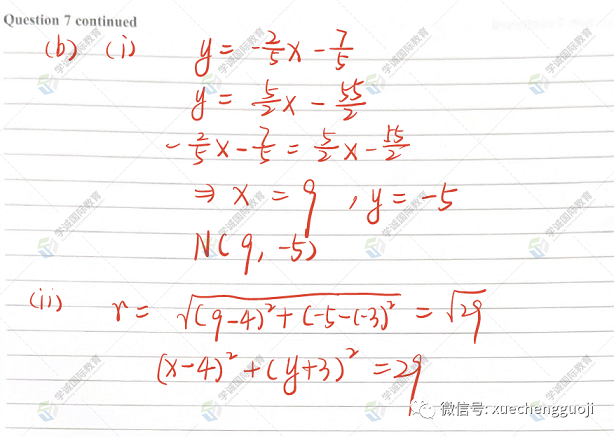 Question 7 continued
(b) (i) y = -2/5 x - 7/5
y = 5/2 x - 55/2
-2/5 x - 7/5 = 5/2 x - 55/2
⇒ x = 9 , y = -5
N(9, -5)
(ii) r = √((9-4)² + (-5-(-3))²) = √29
(x-4)² + (y+3)² = 29
微信号: xuechengguoji
学诚国际教育